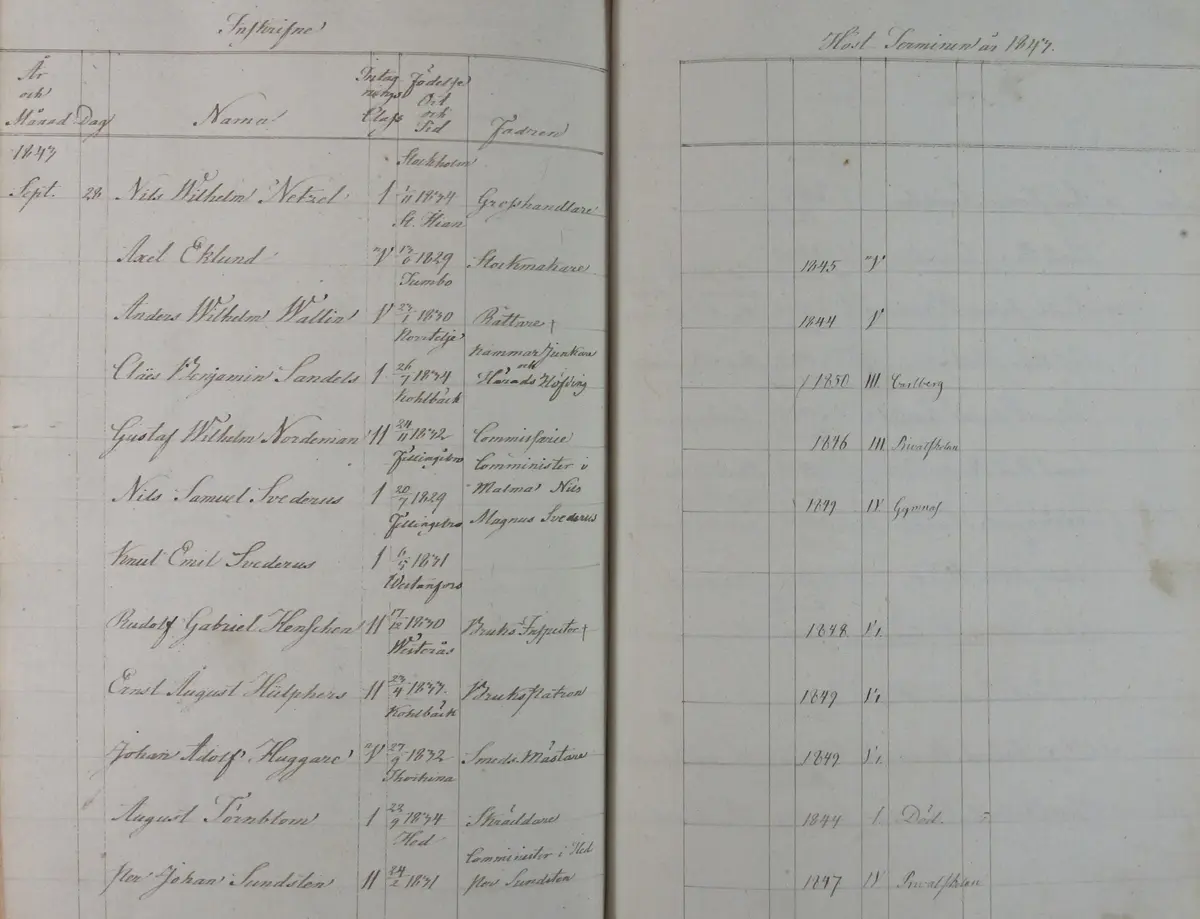 Inskrifne
År och Månad Dag Namn Intagnings Class Födelse Ort och Tid Fadren
1843
Stockholm
Sept. 28 Nils Wilhelm Netzel I 1/11 1834 Grosshandlare
St. Ilian
Axel Eklund 13/6 1829 Stockmakare
Tumbo
Anders Wilhelm Wallin V 23/1 1830 Rättare †
Norrtelje
Claës Benjamin Sandels I 26/7 1834 Kammar Junkare och Härads Höfding
Kohlbäck
Gustaf Wilhelm Nordeman II 24/11 1832 Commissarie
Fellingsbro
Nils Samuel Svederus I 20/7 1829 Comminister i Malma Nils Magnus Svederus
Fellingsbro
Knut Emil Svederus I 6/5 1831
Westanfors
Rudolf Gabriel Henschen II 17/12 1830 Bruks Inspector †
Westerås
Ernst August Hülphers II 23/4 1833 Bruks Patron
Kohlbäck
Johan Adolf Huggare 27/9 1832 Smeds Mästare
August Törnblom I 22/9 1834 Skräddare
Hed
Per Johan Sundsten II 24/2 1831 Comminister i Hed Per Sundsten
Höst Terminen år 1843.
1845 V
1844 V
1850 III Carlberg
1846 III Privatskolan
1849 IV Gymnas
1848
1849
1849
1844 I Död.
1847 IV Privatskolan